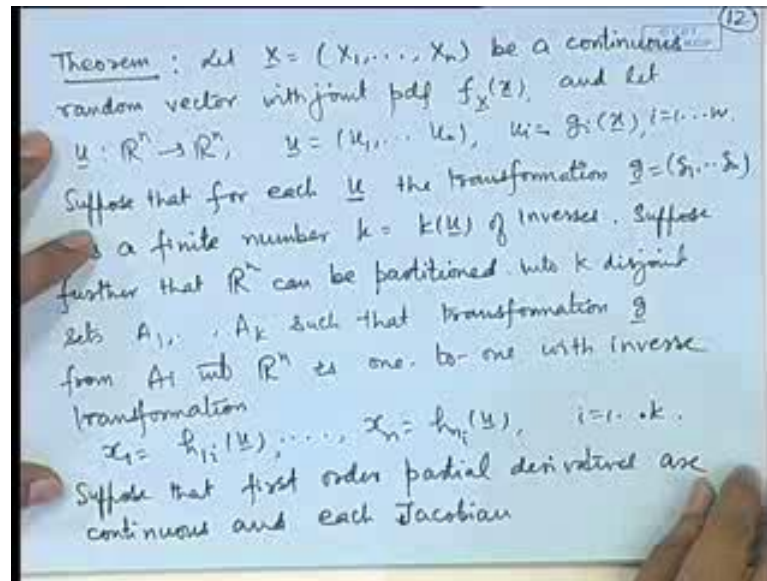 12
Theorem : Let X = (X1,..., Xn) be a continuous
random vector with joint pdf f_X(x), and let
u : ℝⁿ → ℝⁿ, u = (u1,... un), ui = gi(x), i=1...n.
Suppose that for each u the transformation g = (g1...gn)
a finite number k = k(u) of inverses. Suppose
further that ℝⁿ can be partitioned into k disjoint
sets A1,..., Ak such that transformation g
from Ai into ℝⁿ is one-to-one with inverse
transformation
x1 = h1i(u),...., xn = hni(u), i=1...k.
Suppose that first order partial derivatives are
continuous and each Jacobian